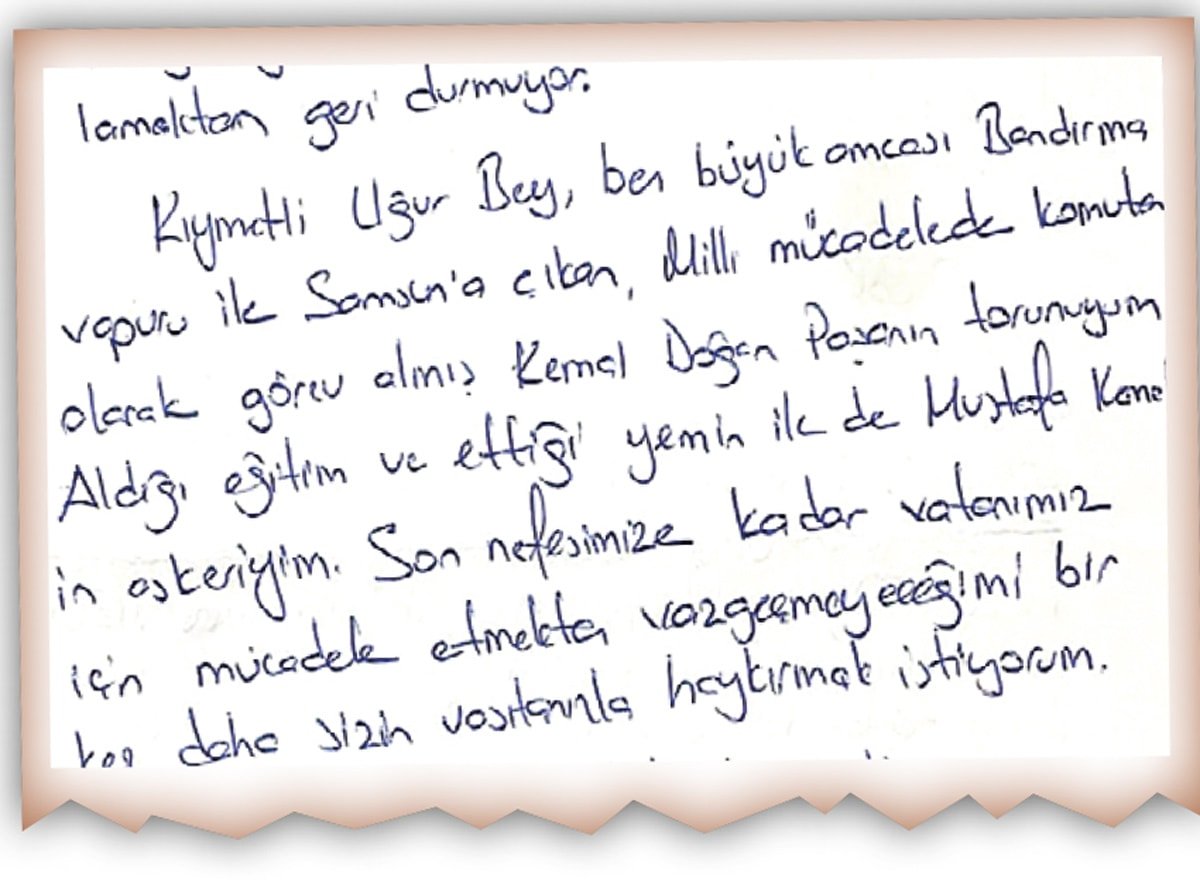 lamaktan geri durmuyor.
Kıymetli Uğur Bey, ben büyük amcası Bandırma
vapuru ile Samsun'a çıkan, Milli mücadelede komuta
olarak görev almış Kemal Doğan Paşanın torunuyum
Aldığı eğitim ve ettiği yemin ile de Mustafa Kema
in askeriyim. Son nefesimize kadar vatanımız
için mücadele etmekten vazgeçmeyeceğimi bir
kez daha sizin vasıtanızla haykırmak istiyorum.